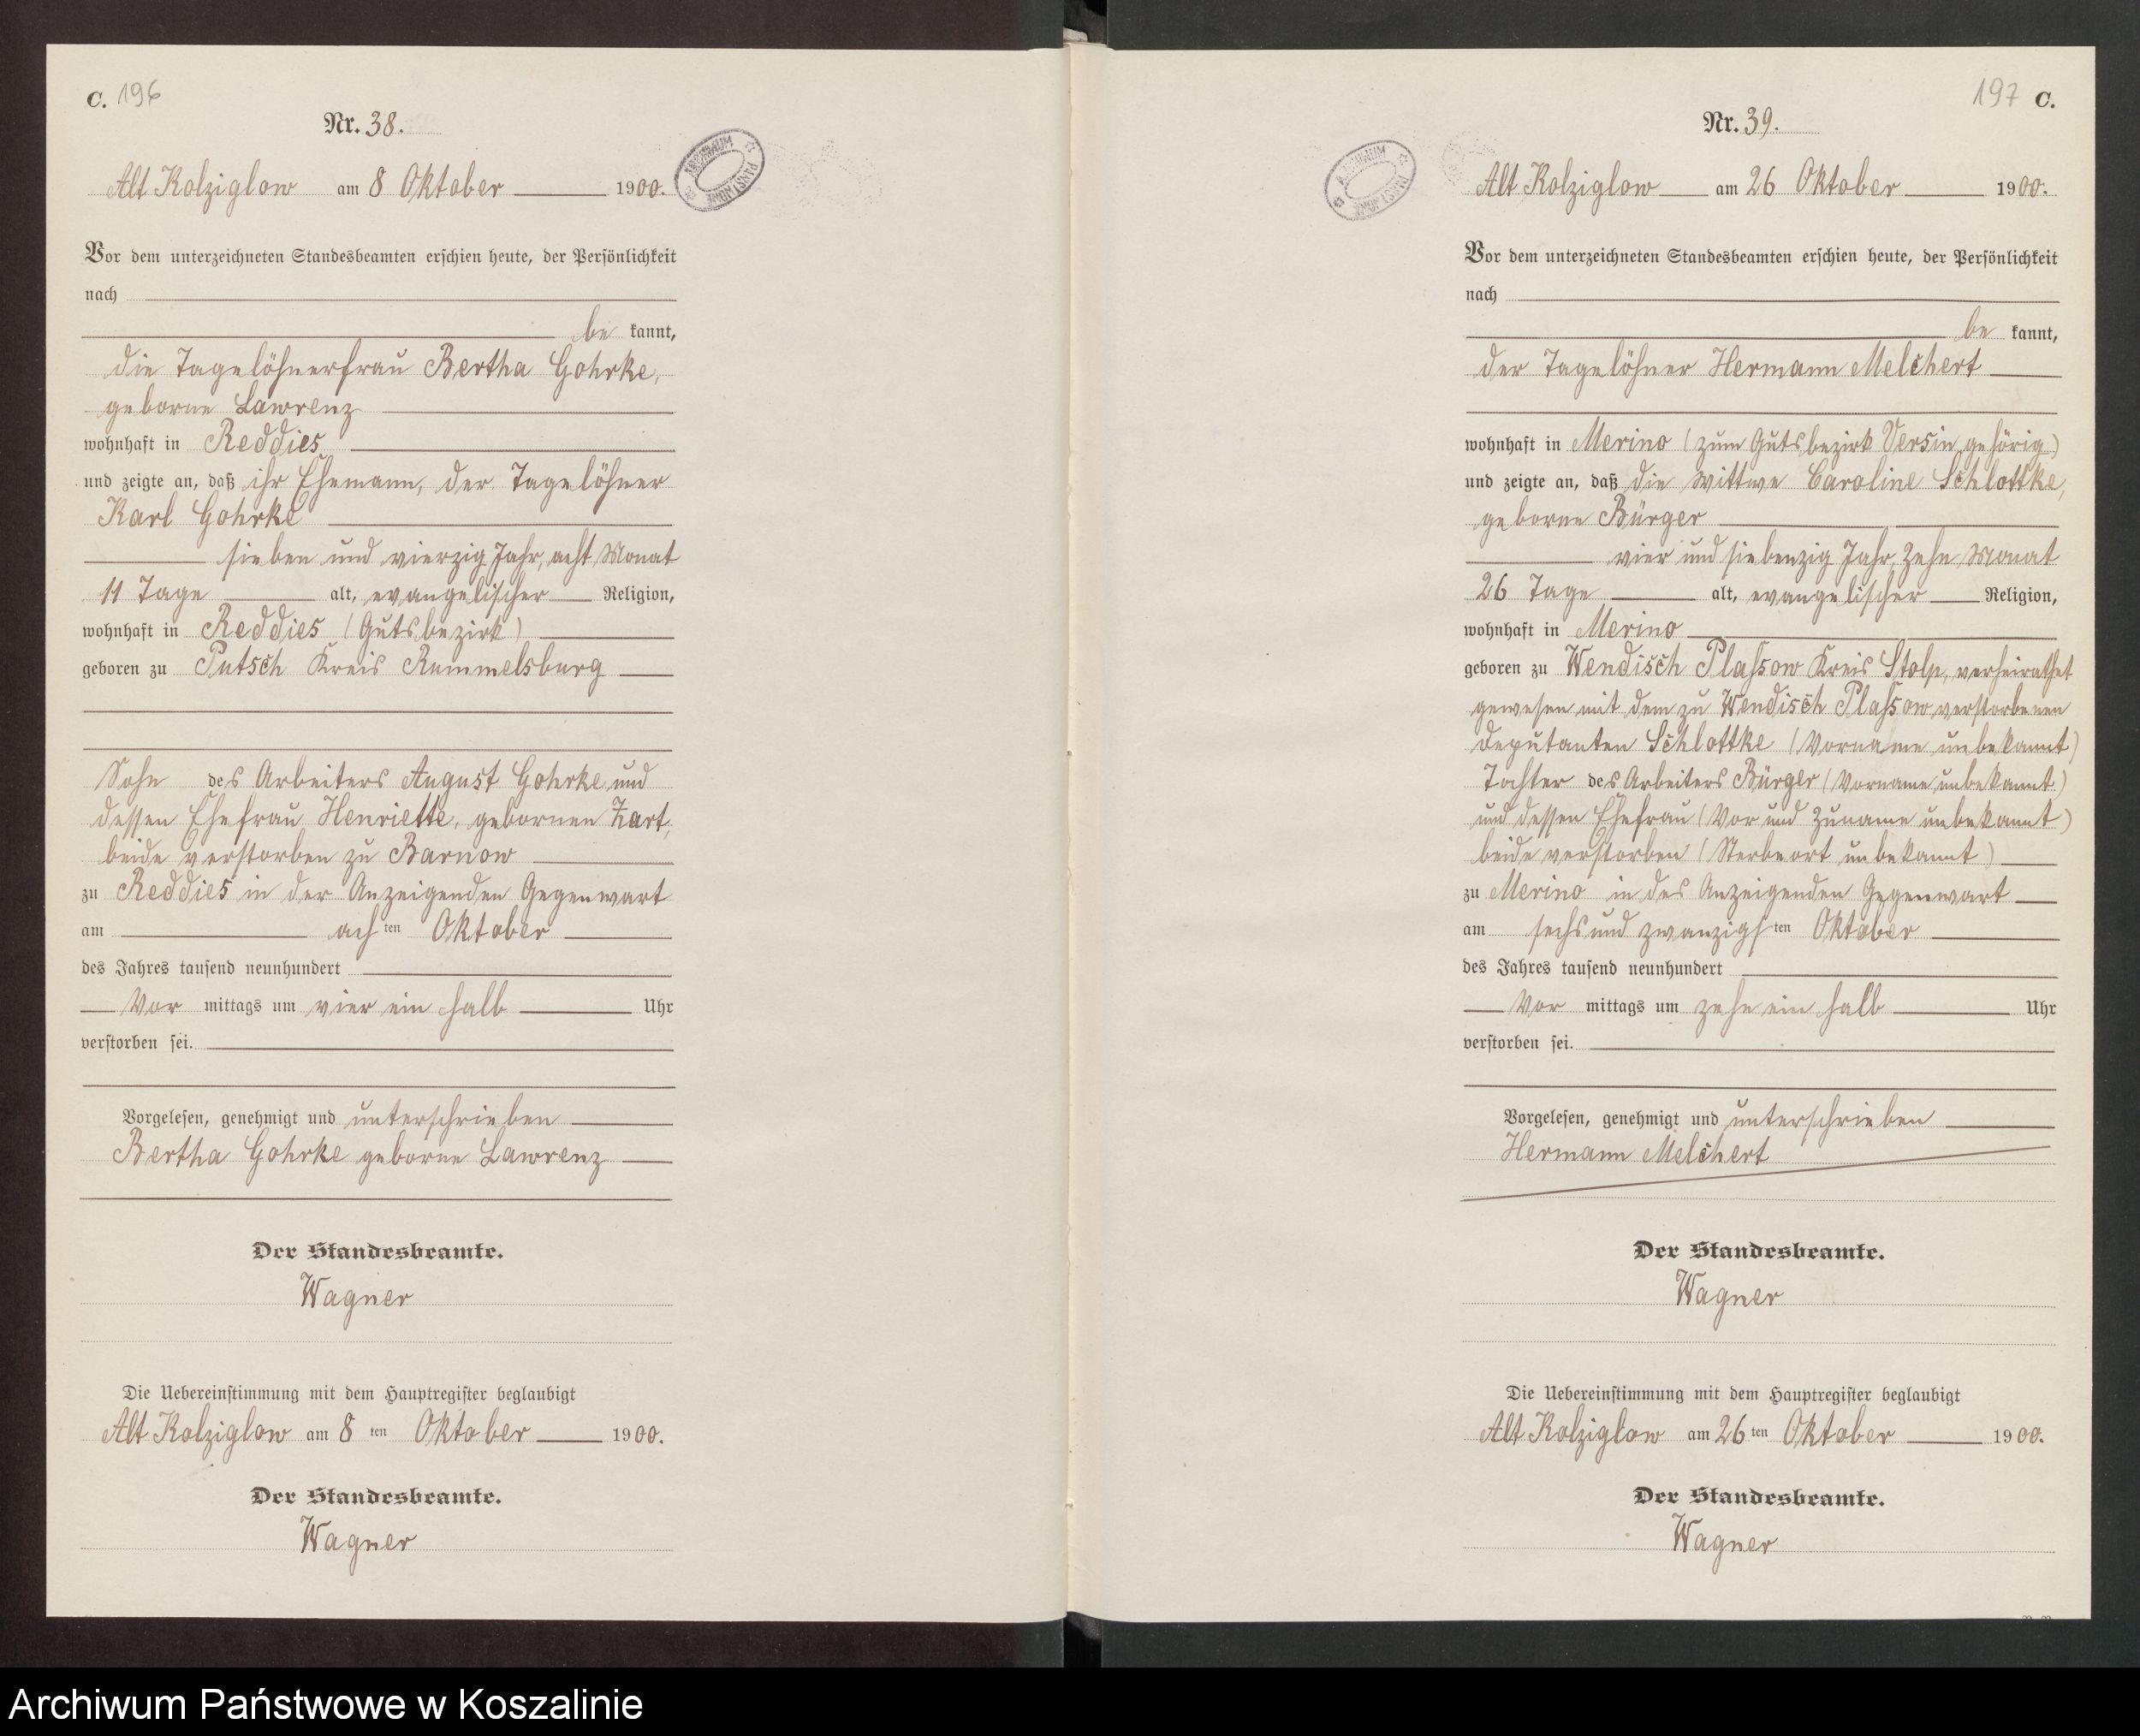 C. 196
Nr. 38.
Alt Kolziglow am 8 Oktober 1900.
ARCHIWUM PAŃSTWOWE
Vor dem unterzeichneten Standesbeamten erschien heute, der Persönlichkeit
nach
be kannt,
die Tagelöhnerfrau Bertha Gohrke,
geborne Lawrenz
wohnhaft in Reddies
und zeigte an, daß ihr Ehemann, der Tagelöhner
Karl Gohrke
sieben und vierzig Jahr, acht Monat
11 Tage alt, evangelischer Religion,
wohnhaft in Reddies (Gutsbezirk)
geboren zu Putsch Kreis Rummelsburg
Sohn des Arbeiters August Gohrke und
dessen Ehefrau Henriette, gebornen Zart,
beide verstorben zu Barnow
zu Reddies in der Anzeigenden Gegenwart
am ach ten Oktober
des Jahres tausend neunhundert
Vor mittags um vier ein halb Uhr
verstorben sei.
Vorgelesen, genehmigt und unterschrieben
Bertha Gohrke geborne Lawrenz
Der Standesbeamte.
Wagner
Die Uebereinstimmung mit dem Hauptregister beglaubigt
Alt Kolziglow am 8 ten Oktober 1900.
Der Standesbeamte.
Wagner
197 C.
Nr. 39.
Alt Kolziglow am 26 Oktober 1900.
ARCHIWUM PAŃSTWOWE
Vor dem unterzeichneten Standesbeamten erschien heute, der Persönlichkeit
nach
be kannt,
der Tagelöhner Hermann Melchert
wohnhaft in Merino (zum Gutsbezirk Versin gehörig)
und zeigte an, daß die Wittwe Caroline Schlottke,
geborne Bürger
vier und siebenzig Jahr, zehn Monat
26 Tage alt, evangelischer Religion,
wohnhaft in Merino
geboren zu Wendisch Plassow Kreis Stolp, verheirathet
gewesen mit dem zu Wendisch Plassow verstorbenen
Deputanten Schlottke (Vorname unbekannt)
Tochter des Arbeiters Bürger (Vorname unbekannt)
und dessen Ehefrau (Vor und Zuname unbekannt)
beide verstorben (Sterbeort unbekannt)
zu Merino in des Anzeigenden Gegenwart
am sechs und zwanzigs ten Oktober
des Jahres tausend neunhundert
Vor mittags um zehn ein halb Uhr
verstorben sei.
Vorgelesen, genehmigt und unterschrieben
Hermann Melchert
Der Standesbeamte.
Wagner
Die Uebereinstimmung mit dem Hauptregister beglaubigt
Alt Kolziglow am 26 ten Oktober 1900.
Der Standesbeamte.
Wagner
Archiwum Państwowe w Koszalinie